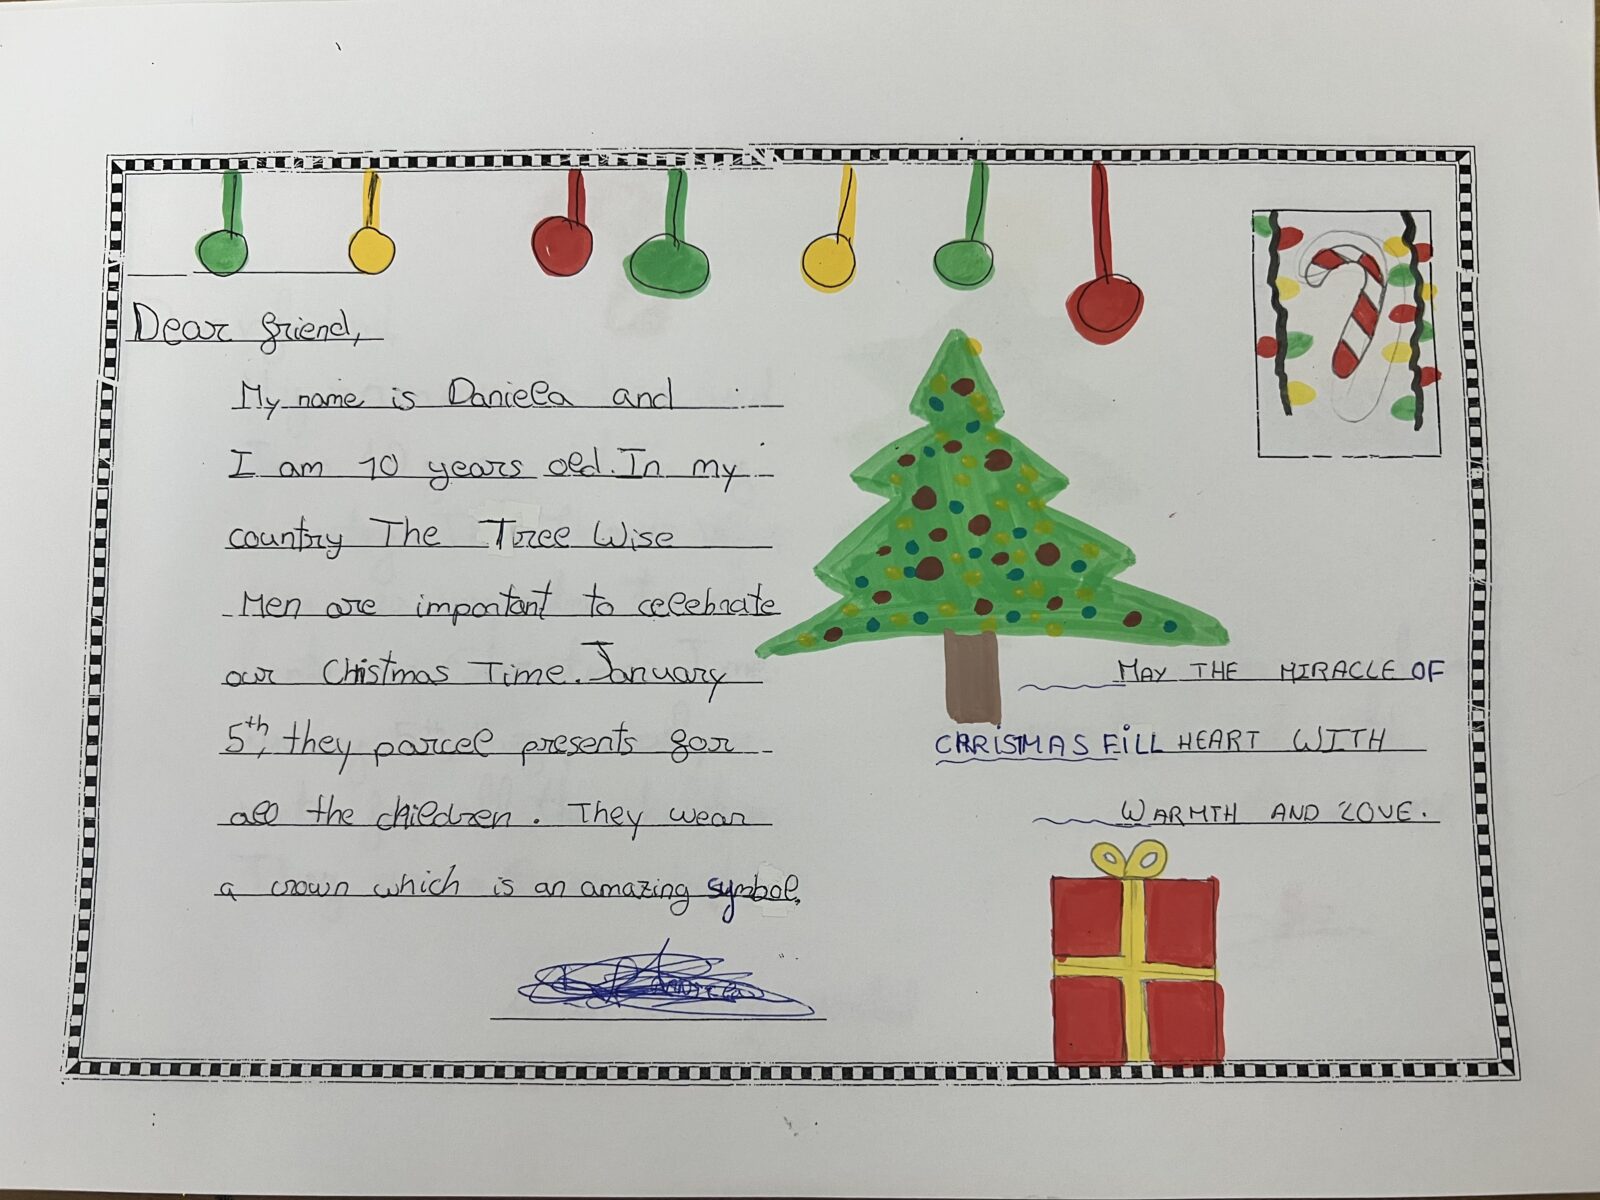 Dear friend,
My name is Daniela and
I am 10 years old. In my
country The Tree Wise
Men are important to celebrate
our Christmas Time. January
5th, they parcel presents for
all the children. They wear
a crown which is an amazing symbol.
MAY THE MIRACLE OF
CHRISTMAS FILL HEART WITH
WARMTH AND LOVE.